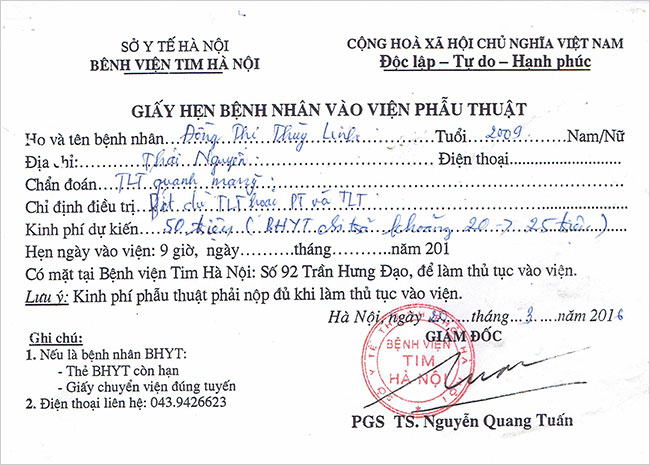 SỞ Y TẾ HÀ NỘI
BỆNH VIỆN TIM HÀ NỘI
CỘNG HOÀ XÃ HỘI CHỦ NGHĨA VIỆT NAM
Độc lập – Tự do – Hạnh phúc
GIẤY HẸN BỆNH NHÂN VÀO VIỆN PHẪU THUẬT
Họ và tên bệnh nhân Đồng Thị Thùy Linh Tuổi 2009 Nam/Nữ
Địa chỉ: Thái Nguyên Điện thoại
Chẩn đoán TLT quanh màng
Chỉ định điều trị Bít dù TLT hoặc PT vá TLT
Kinh phí dự kiến 50 triệu (BHYT chi trả khoảng 20 -> 25 triệu)
Hẹn ngày vào viện: 9 giờ, ngày.............tháng...........năm 201
Có mặt tại Bệnh viện Tim Hà Nội: Số 92 Trần Hưng Đạo, để làm thủ tục vào viện.
Lưu ý: Kinh phí phẫu thuật phải nộp đủ khi làm thủ tục vào viện.
Hà Nội, ngày tháng 3 năm 2016
GIÁM ĐỐC
BỆNH VIỆN
TIM
HÀ NỘI
Ghi chú:
1. Nếu là bệnh nhân BHYT:
- Thẻ BHYT còn hạn
- Giấy chuyển viện đúng tuyến
2. Điện thoại liên hệ: 043.9426623
PGS TS. Nguyễn Quang Tuấn